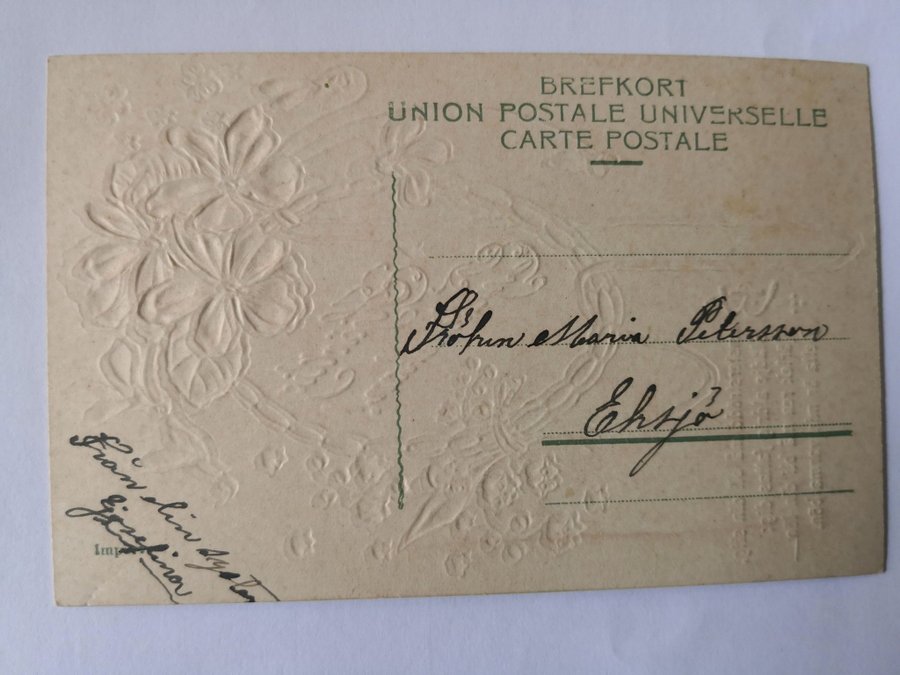 BREFKORT
UNION POSTALE UNIVERSELLE
CARTE POSTALE
Fröken Maria Petersson
Eksjö
Från din syster